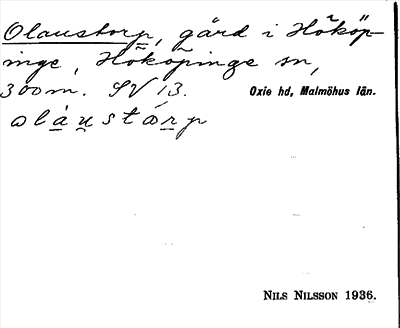 Olaustorp, gård i Hököp-
inge, Hököpinge sn,
300 m. SV 13. Oxie hd, Malmöhus län.
olàustórp
NILS NILSSON 1936.